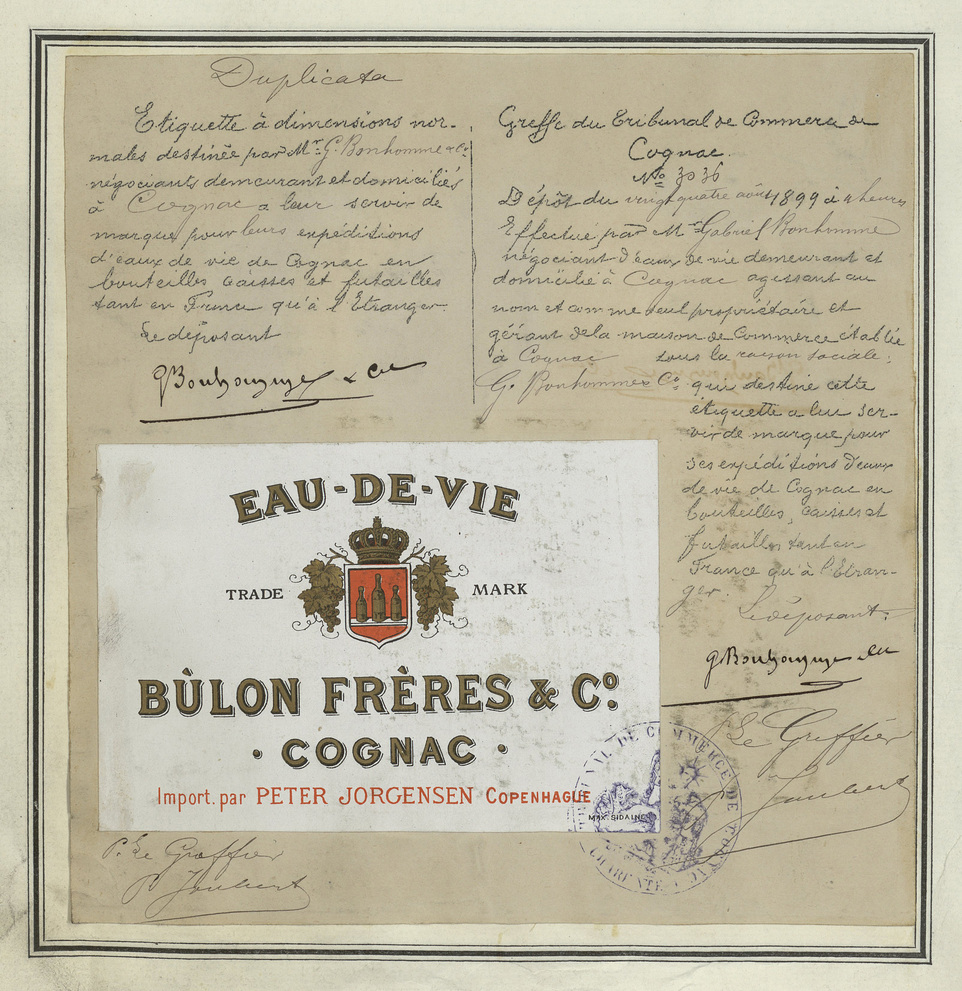 Duplicata
Etiquette à dimensions nor-
males destinée par Mr G. Bonhomme & Co
négociants demeurant et domiciliés
à Cognac a leur servir de
marque pour leurs expéditions
d'eaux de vie de Cognac en
bouteilles caisses et futailles
tant en France qu'à l'Etranger.
Le déposant
G Bonhomme & Cie
Greffe du Tribunal de Commerce de
Cognac.
No 3036
Dépôt du vingt quatre août 1899 à 4 heures
Effectué par Mr Gabriel Bonhomme
négociant d'eaux de vie demeurant et
domicilié à Cognac agissant au
nom et comme seul propriétaire et
gérant de la maison de Commerce établie
à Cognac sous la raison sociale:
G. Bonhomme & Co qui destine cette
étiquette a leur ser-
vir de marque pour
ses expéditions d'eaux
de vie de Cognac en
bouteilles, caisses et
futailles tant en
France qu'à l'Etran-
ger.
Le déposant.
G Bonhomme & Cie
P. Le Greffier
Joubert
EAU-DE-VIE
TRADE MARK
BÙLON FRÈRES & Co.
· COGNAC ·
Import. par PETER JORGENSEN COPENHAGUE
TRIBUNAL DE COMMERCE DE COGNAC
CHARENTE
P. Le Greffier
P Joubert